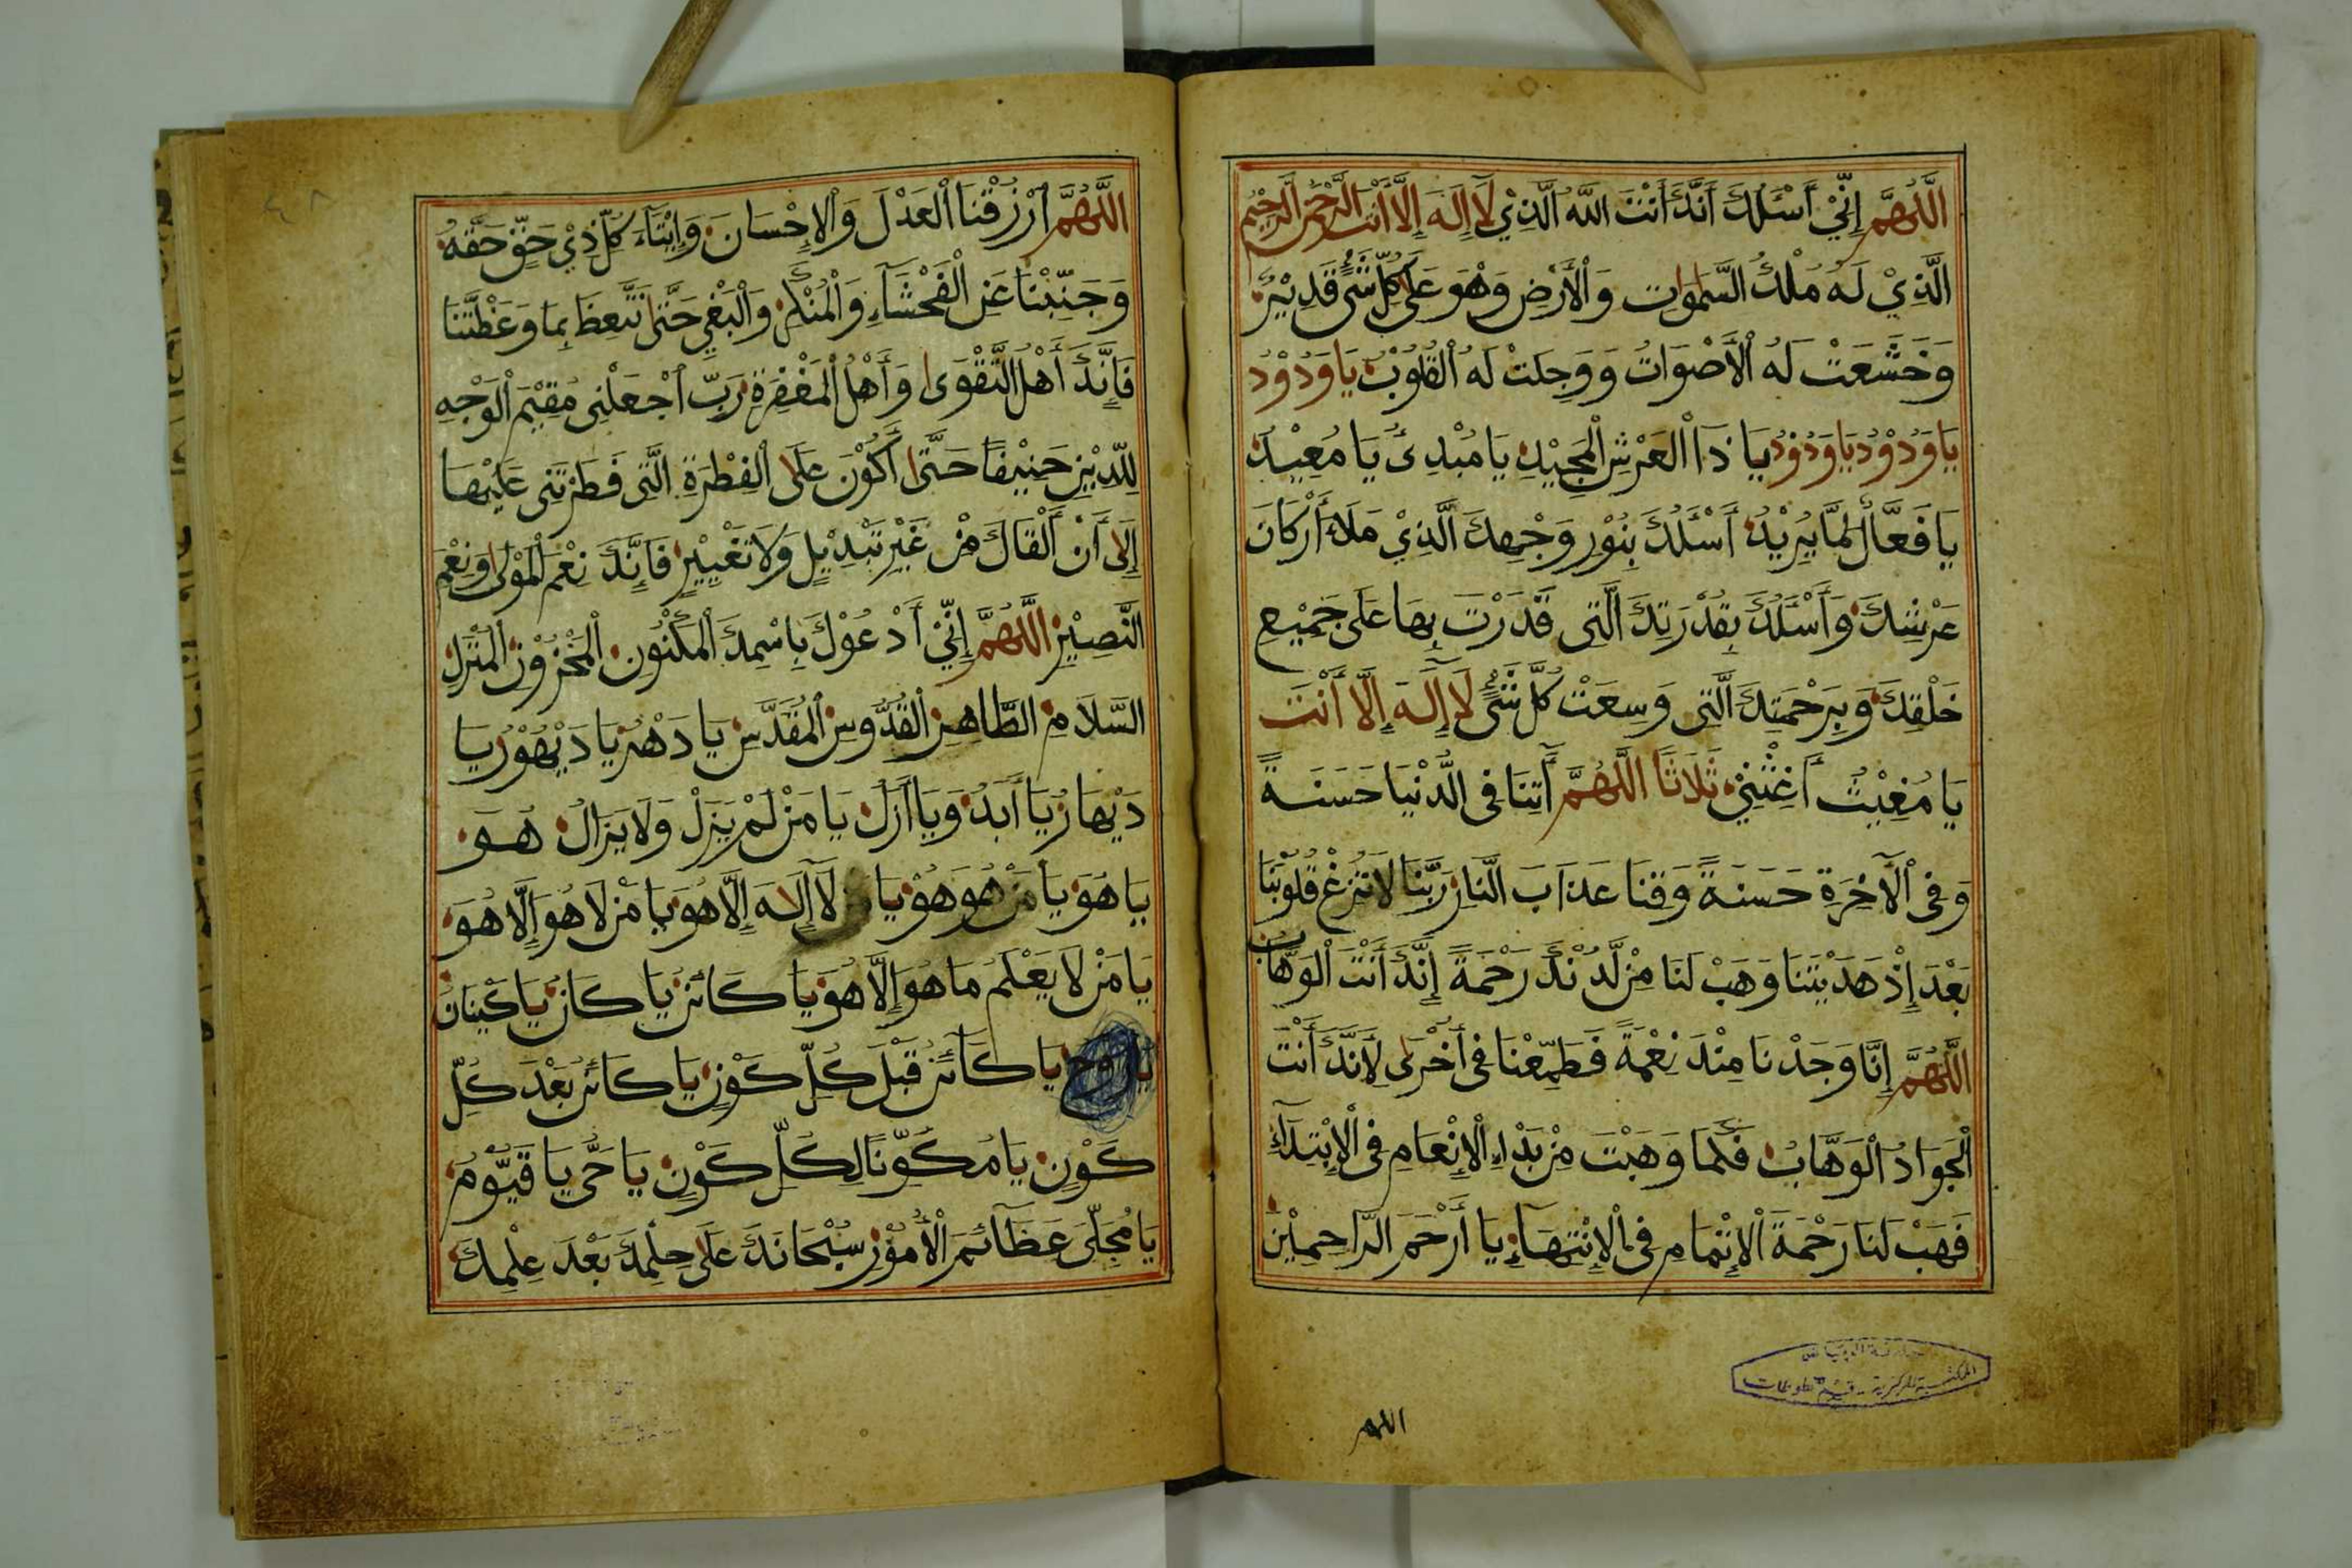 اَللّٰهُمَّ إِنِّيْ أَسْئَلُكَ أَنَّكَ أَنْتَ اللّٰهُ الَّذِيْ لَا إِلَهَ إِلَّا أَنْتَ الرَّحْمٰنُ الرَّحِيْمُ
الَّذِيْ لَهُ مُلْكُ السَّمٰوَاتِ وَالْأَرْضِ وَهُوَ عَلَى كُلِّ شَيْءٍ قَدِيْرٌ
وَخَشَعَتْ لَهُ الْأَصْوَاتُ وَوَجِلَتْ لَهُ الْقُلُوْبُ يَا وَدُوْدُ
يَا وَدُوْدُ يَا وَدُوْدُ يَا ذَا الْعَرْشِ الْمَجِيْدِ يَا مُبْدِئُ يَا مُعِيْدُ
يَا فَعَّالٌ لِمَا يُرِيْدُ أَسْئَلُكَ بِنُوْرِ وَجْهِكَ الَّذِيْ مَلَاءَ أَرْكَانَ
عَرْشِكَ وَأَسْئَلُكَ بِقُدْرَتِكَ الَّتِى قَدَرْتَ بِهَا عَلَى جَمِيْعِ
خَلْقِكَ وَبِرَحْمَتِكَ الَّتِى وَسِعَتْ كُلَّ شَيْءٍ لَا إِلَهَ إِلَّا أَنْتَ
يَا مُغِيْثُ أَغِثْنِيْ ثَلَاثًا اللّٰهُمَّ آتِنَا فِى الدُّنْيَا حَسَنَةً
وَفِى الْآخِرَةِ حَسَنَةً وَقِنَا عَذَابَ النَّارِ رَبَّنَا لَا تُزِغْ قُلُوْبَنَا
بَعْدَ إِذْ هَدَيْتَنَا وَهَبْ لَنَا مِنْ لَّدُنْكَ رَحْمَةً إِنَّكَ أَنْتَ الْوَهَّابُ
اَللّٰهُمَّ إِنَّا وَجَدْنَا مِنْكَ نِعْمَةً فَطَمِعْنَا فِى أُخْرَى لِأَنَّكَ أَنْتَ
الْجَوَادُ الْوَهَّابُ فَكَمَا وَهَبْتَ مِنْ بَدْاءِ الْإِنْعَامِ فِى الْإِبْتِدَآءِ
فَهَبْ لَنَا رَحْمَةَ الْإِتْمَامِ فِى الْإِنْتِهَآءِ يَا أَرْحَمَ الرَّاحِمِيْنَ
اللهم
المكتبة المركزية - قسم المخطوطات
اَللّٰهُمَّ ارْزُقْنَا الْعَدْلَ وَالْإِحْسَانَ وَإِيْتَآءَ كُلِّ ذِيْ حَقٍّ حَقَّهُ
وَجَنِّبْنَا عَنِ الْفَحْشَآءِ وَالْمُنْكَرِ وَالْبَغْيِ حَتَّى نَتَّعِظَ بِمَا وَعَظْتَنَا
فَإِنَّكَ أَهْلُ التَّقْوَى وَأَهْلُ الْمَغْفِرَةِ رَبِّ اجْعَلْنِى مُقِيْمَ الْوَجْهِ
لِلدِّيْنِ حَنِيْفًا حَتَّى أَكُوْنَ عَلَى الْفِطْرَةِ الَّتِى فَطَرْتَنِى عَلَيْهَا
إِلَى أَنْ أَلْقَاكَ مِنْ غَيْرِ تَبْدِيْلٍ وَلَا تَغْيِيْرٍ فَإِنَّكَ نِعْمَ الْمَوْلَى وَنِعْمَ
النَّصِيْرُ اَللّٰهُمَّ إِنِّيْ أَدْعُوْكَ بِاسْمِكَ الْمَكْنُوْنِ الْمَخْزُوْنِ الْمُنْزَلِ
السَّلَامِ الطَّاهِرِ الْقُدُّوسِ الْمُقَدَّسِ يَا دَهْرُ يَا دَيْهُوْرُ يَا
دَيْهَارُ يَا أَبَدُ وَيَا أَزَلُ يَا مَنْ لَمْ يَزَلْ وَلَا يَزَالُ هُوَ
يَا هُوَ يَا مَنْ هُوَ هُوْ يَا لَا إِلَهَ إِلَّا هُوَ يَا مَنْ لَا هُوَ إِلَّا هُوَ
يَا مَنْ لَا يَعْلَمُ مَا هُوَ إِلَّا هُوَ يَا كَائِنُ يَا كَانُ يَا كَيْنَانُ
يَا رُوْحُ يَا كَآئِنُ قَبْلَ كُلِّ كَوْنٍ يَا كَائِنُ بَعْدَ كُلِّ
كَوْنٍ يَا مُكَوِّنًا لِكُلِّ كَوْنٍ يَا حَيُّ يَا قَيُّوْمُ
يَا مُجَلِّيَ عَظَآئِمَ الْأُمُوْرِ سُبْحَانَكَ عَلَى حِلْمِكَ بَعْدَ عِلْمِكَ